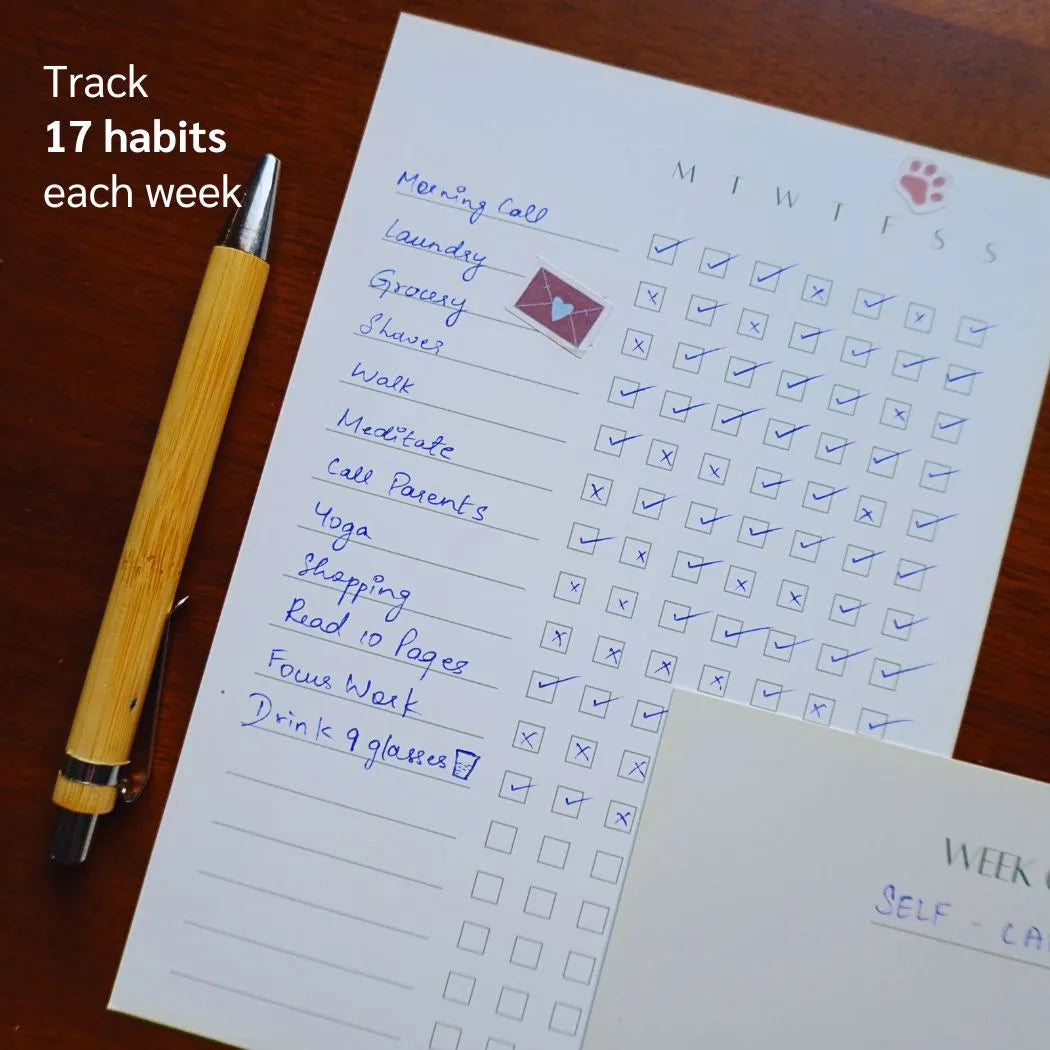 Track
17 habits
each week
M T W T F S S
Morning Call
Laundry
Grocery
Shower
Walk
Meditate
Call Parents
Yoga
Shopping
Read 10 Pages
Focus Work
Drink 9 glasses
WEEK
SELF - CA